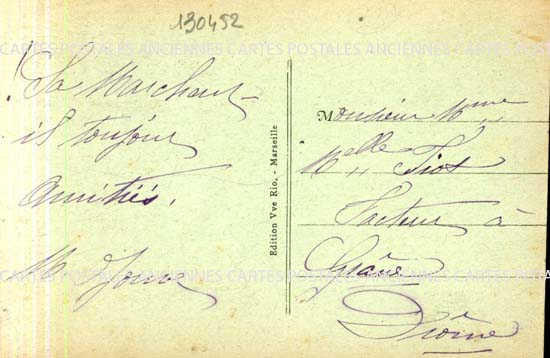 130452
CARTES POSTALES ANCIENNES CARTES POSTALES ANCIENNES CARTES POSTALES ANCIENNES
Sa Marchant-
il toujour
amitiés.
M Joux
Edition Vve Rio. - Marseille
Monsieur Mme
Melle Fiot
Facteur à
Grâne
Drôme
CARTES POSTALES ANCIENNES CARTES POSTALES ANCIENNES CARTES POSTALES ANCIENNES